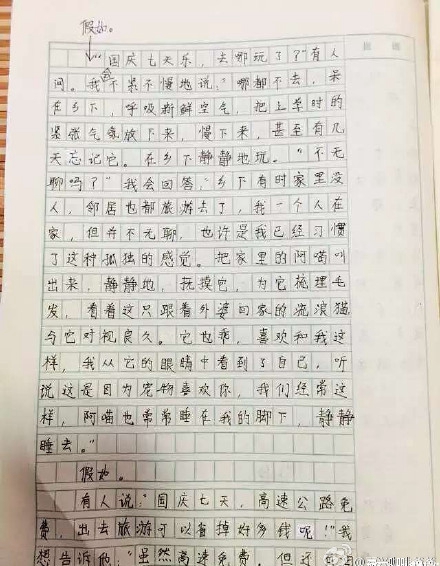 假如。
"国庆七天乐，去哪玩了？"有人
问。我会不紧不慢地说："哪都不去，呆
在乡下，呼吸新鲜空气，把上学时的
紧张气氛放下来，慢下来，甚至有几
天忘记它。在乡下静静地玩。""不无
聊吗？""我会回答，"乡下有时家里没
人，邻居也都旅游去了，我一个人在
家，但并不无聊，也许是我已经习惯
了这种孤独的感觉。把家里的阿喵叫
出来，静静地，抚摸它，为它梳理毛
发，看着这只跟着外婆回家的流浪猫
与它对视良久。它也乖，喜欢和我这
样，我从它的眼睛中看到了自己，听
说这是因为宠物喜欢你，我们经常这
样，阿喵也常常睡在我的脚下，静静
睡去。"
假如。
有人说："国庆七天，高速公路免
费，出去旅游可以省掉好多钱呢！"我
想告诉他："虽然高速免费，但还